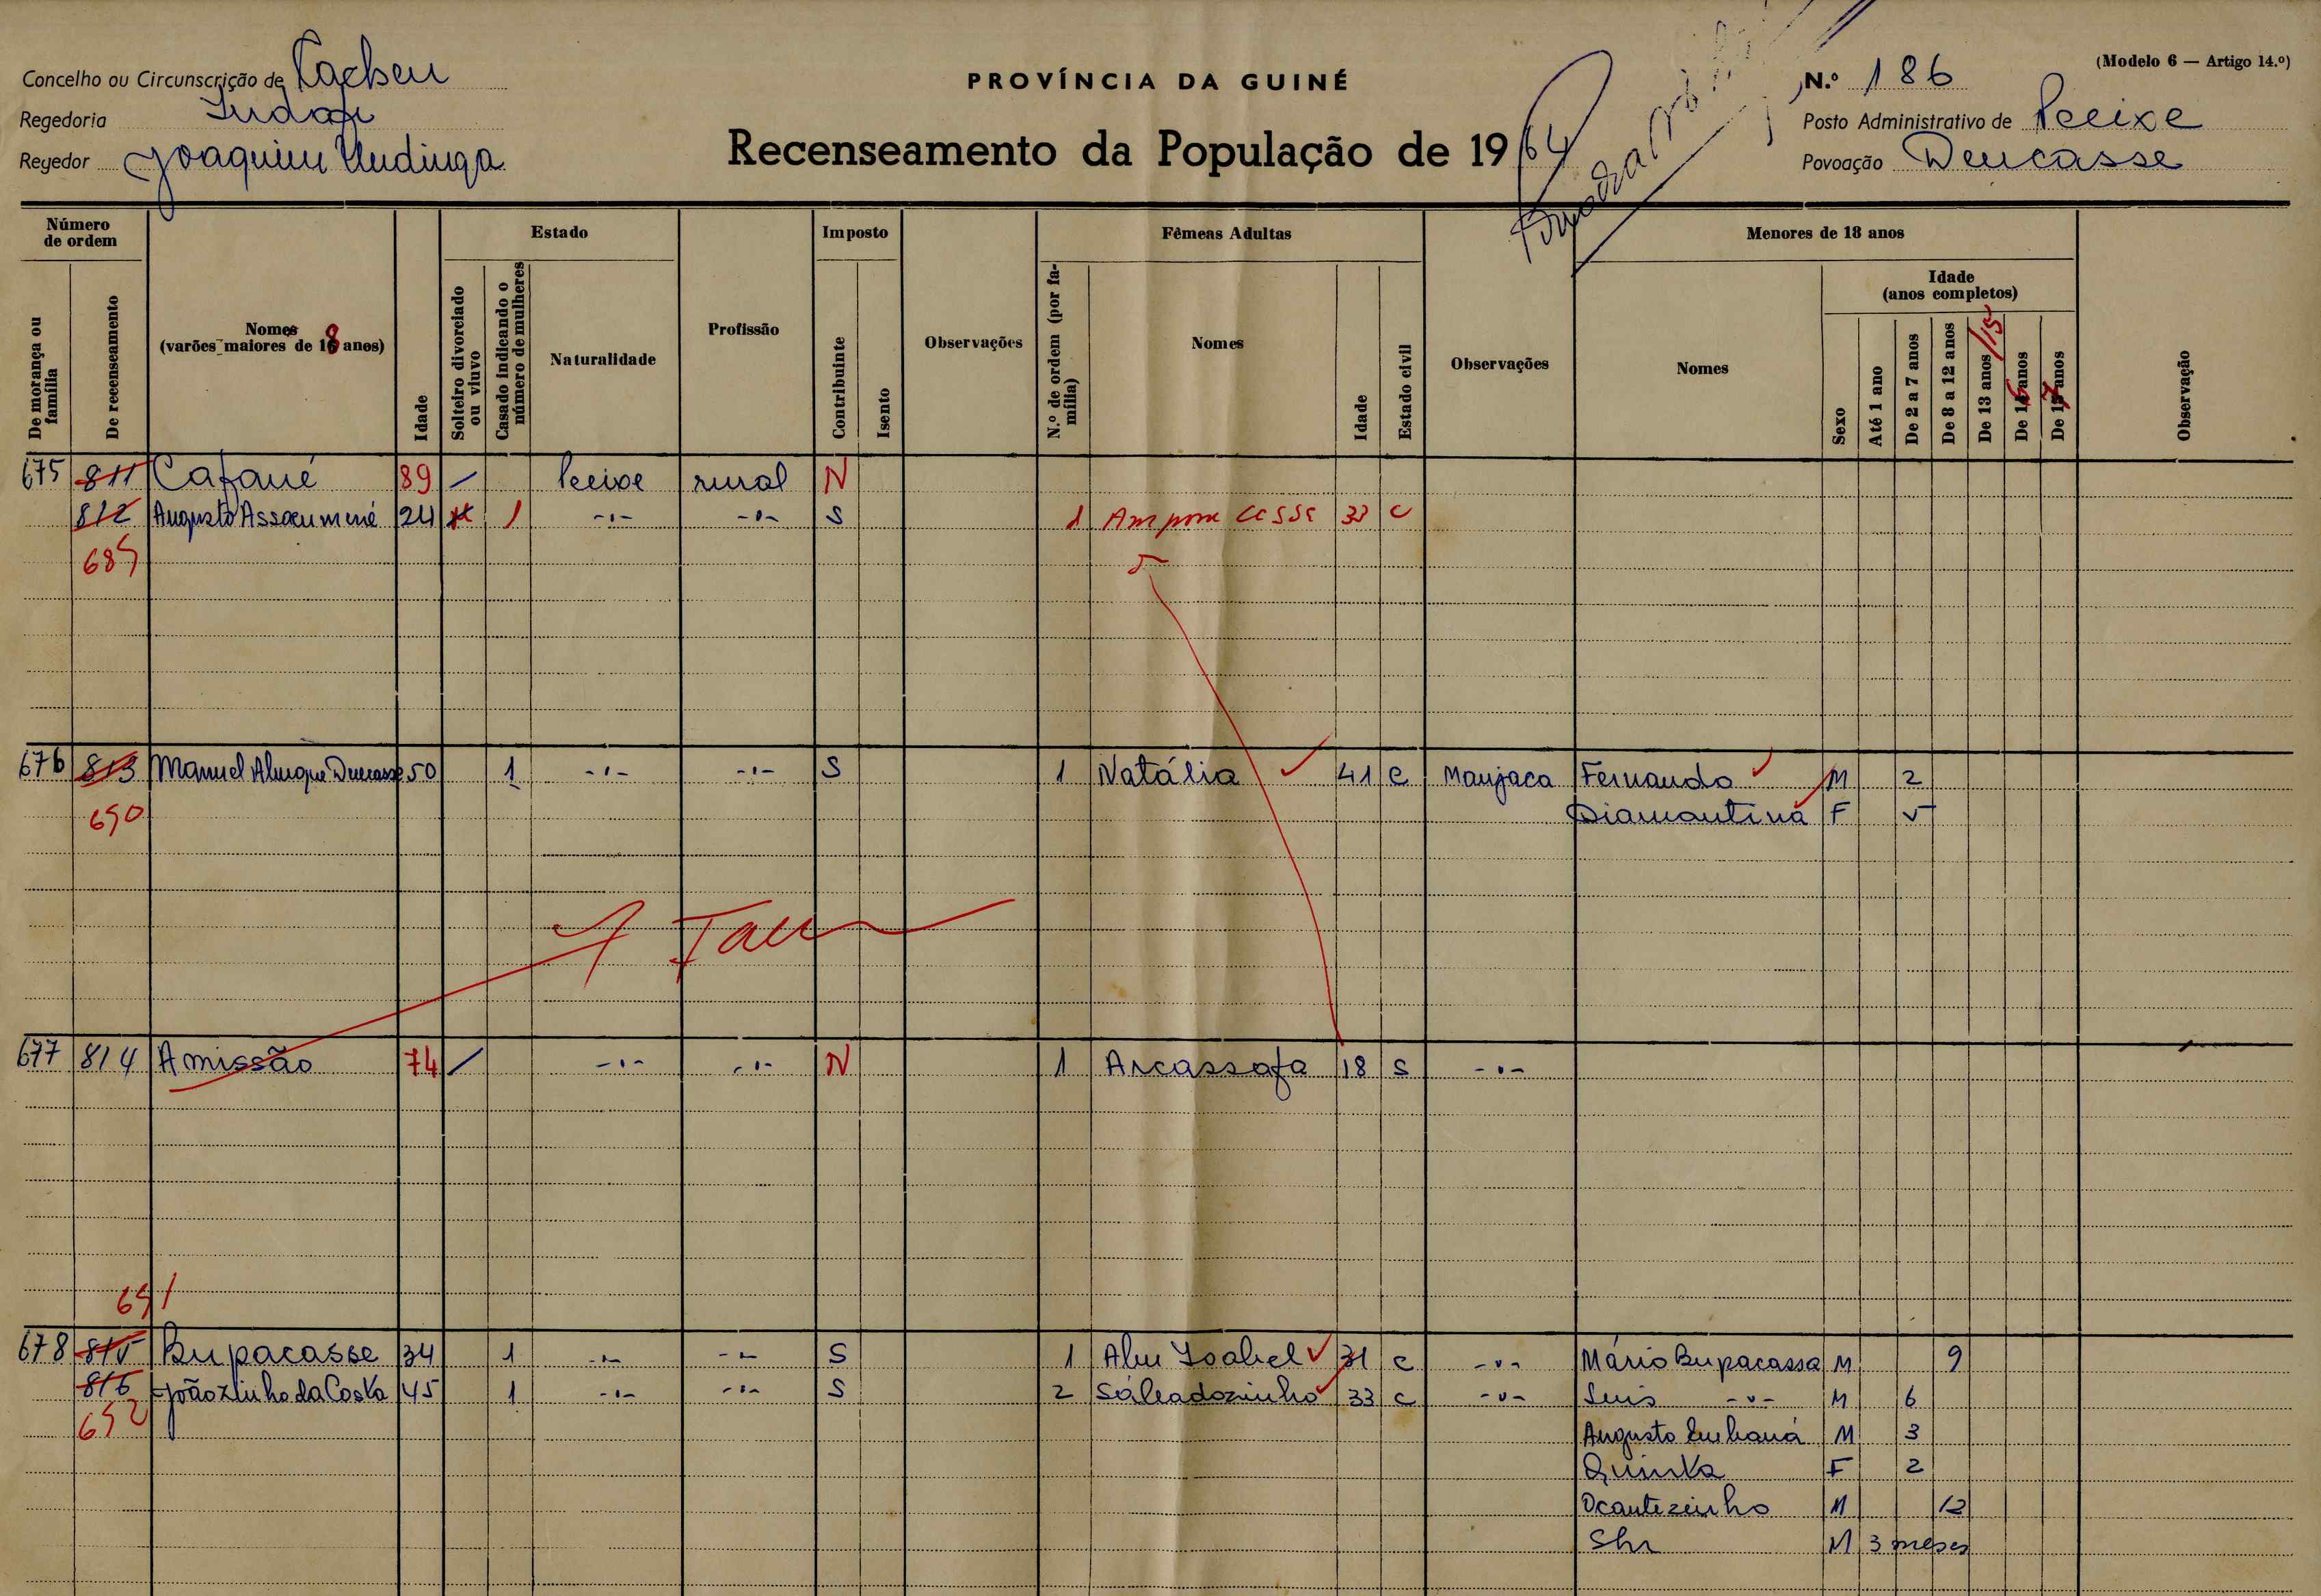 Concelho ou Circunscrição de Cacheu
Regedoria
Regedor Joaquim Undinga
PROVÍNCIA DA GUINÉ
Recenseamento da População de 1964
(Modelo 6 — Artigo 14.º)
N.º 186
Posto Administrativo de Pecixe
Povoação Dencasse
Número de ordem
De morança ou família
De recenseamento
Nomes
(varões maiores de 18 anos)
Idade
Estado
Solteiro divorciado ou viuvo
Casado indicando o número de mulheres
Naturalidade
Profissão
Imposto
Contribuinte
Isento
Observações
Fêmeas Adultas
N.º de ordem (por família)
Nomes
Idade
Estado civil
Observações
Menores de 18 anos
Nomes
Sexo
Idade
(anos completos)
Até 1 ano
De 2 a 7 anos
De 8 a 12 anos
De 13 anos /15
De 16 anos
De 17 anos
Observação
675 811 Cafané 89 Pecixe rural N
812 Augusto Assoeumené 24 1 -"- -"- S 1 33 C
689
676 813 Manuel 50 1 -"- -"- S 1 Natália 41 C Manjaca Fernando M 2
690 Diamantina F 5
677 814 Amissão 74 -"- -"- N 1 Arcassafa 18 S -"-
691
678 815 Bupacasse 34 1 -"- -"- S 1 Isabel 31 C -"- Mário Bupacassa M 9
816 Joãozinho da Costa 45 1 -"- -"- S 2 33 C -"- Luis -"- M 6
692 Augusto M 3
Quinta F 2
Ocantezinho M 12
M 3 meses